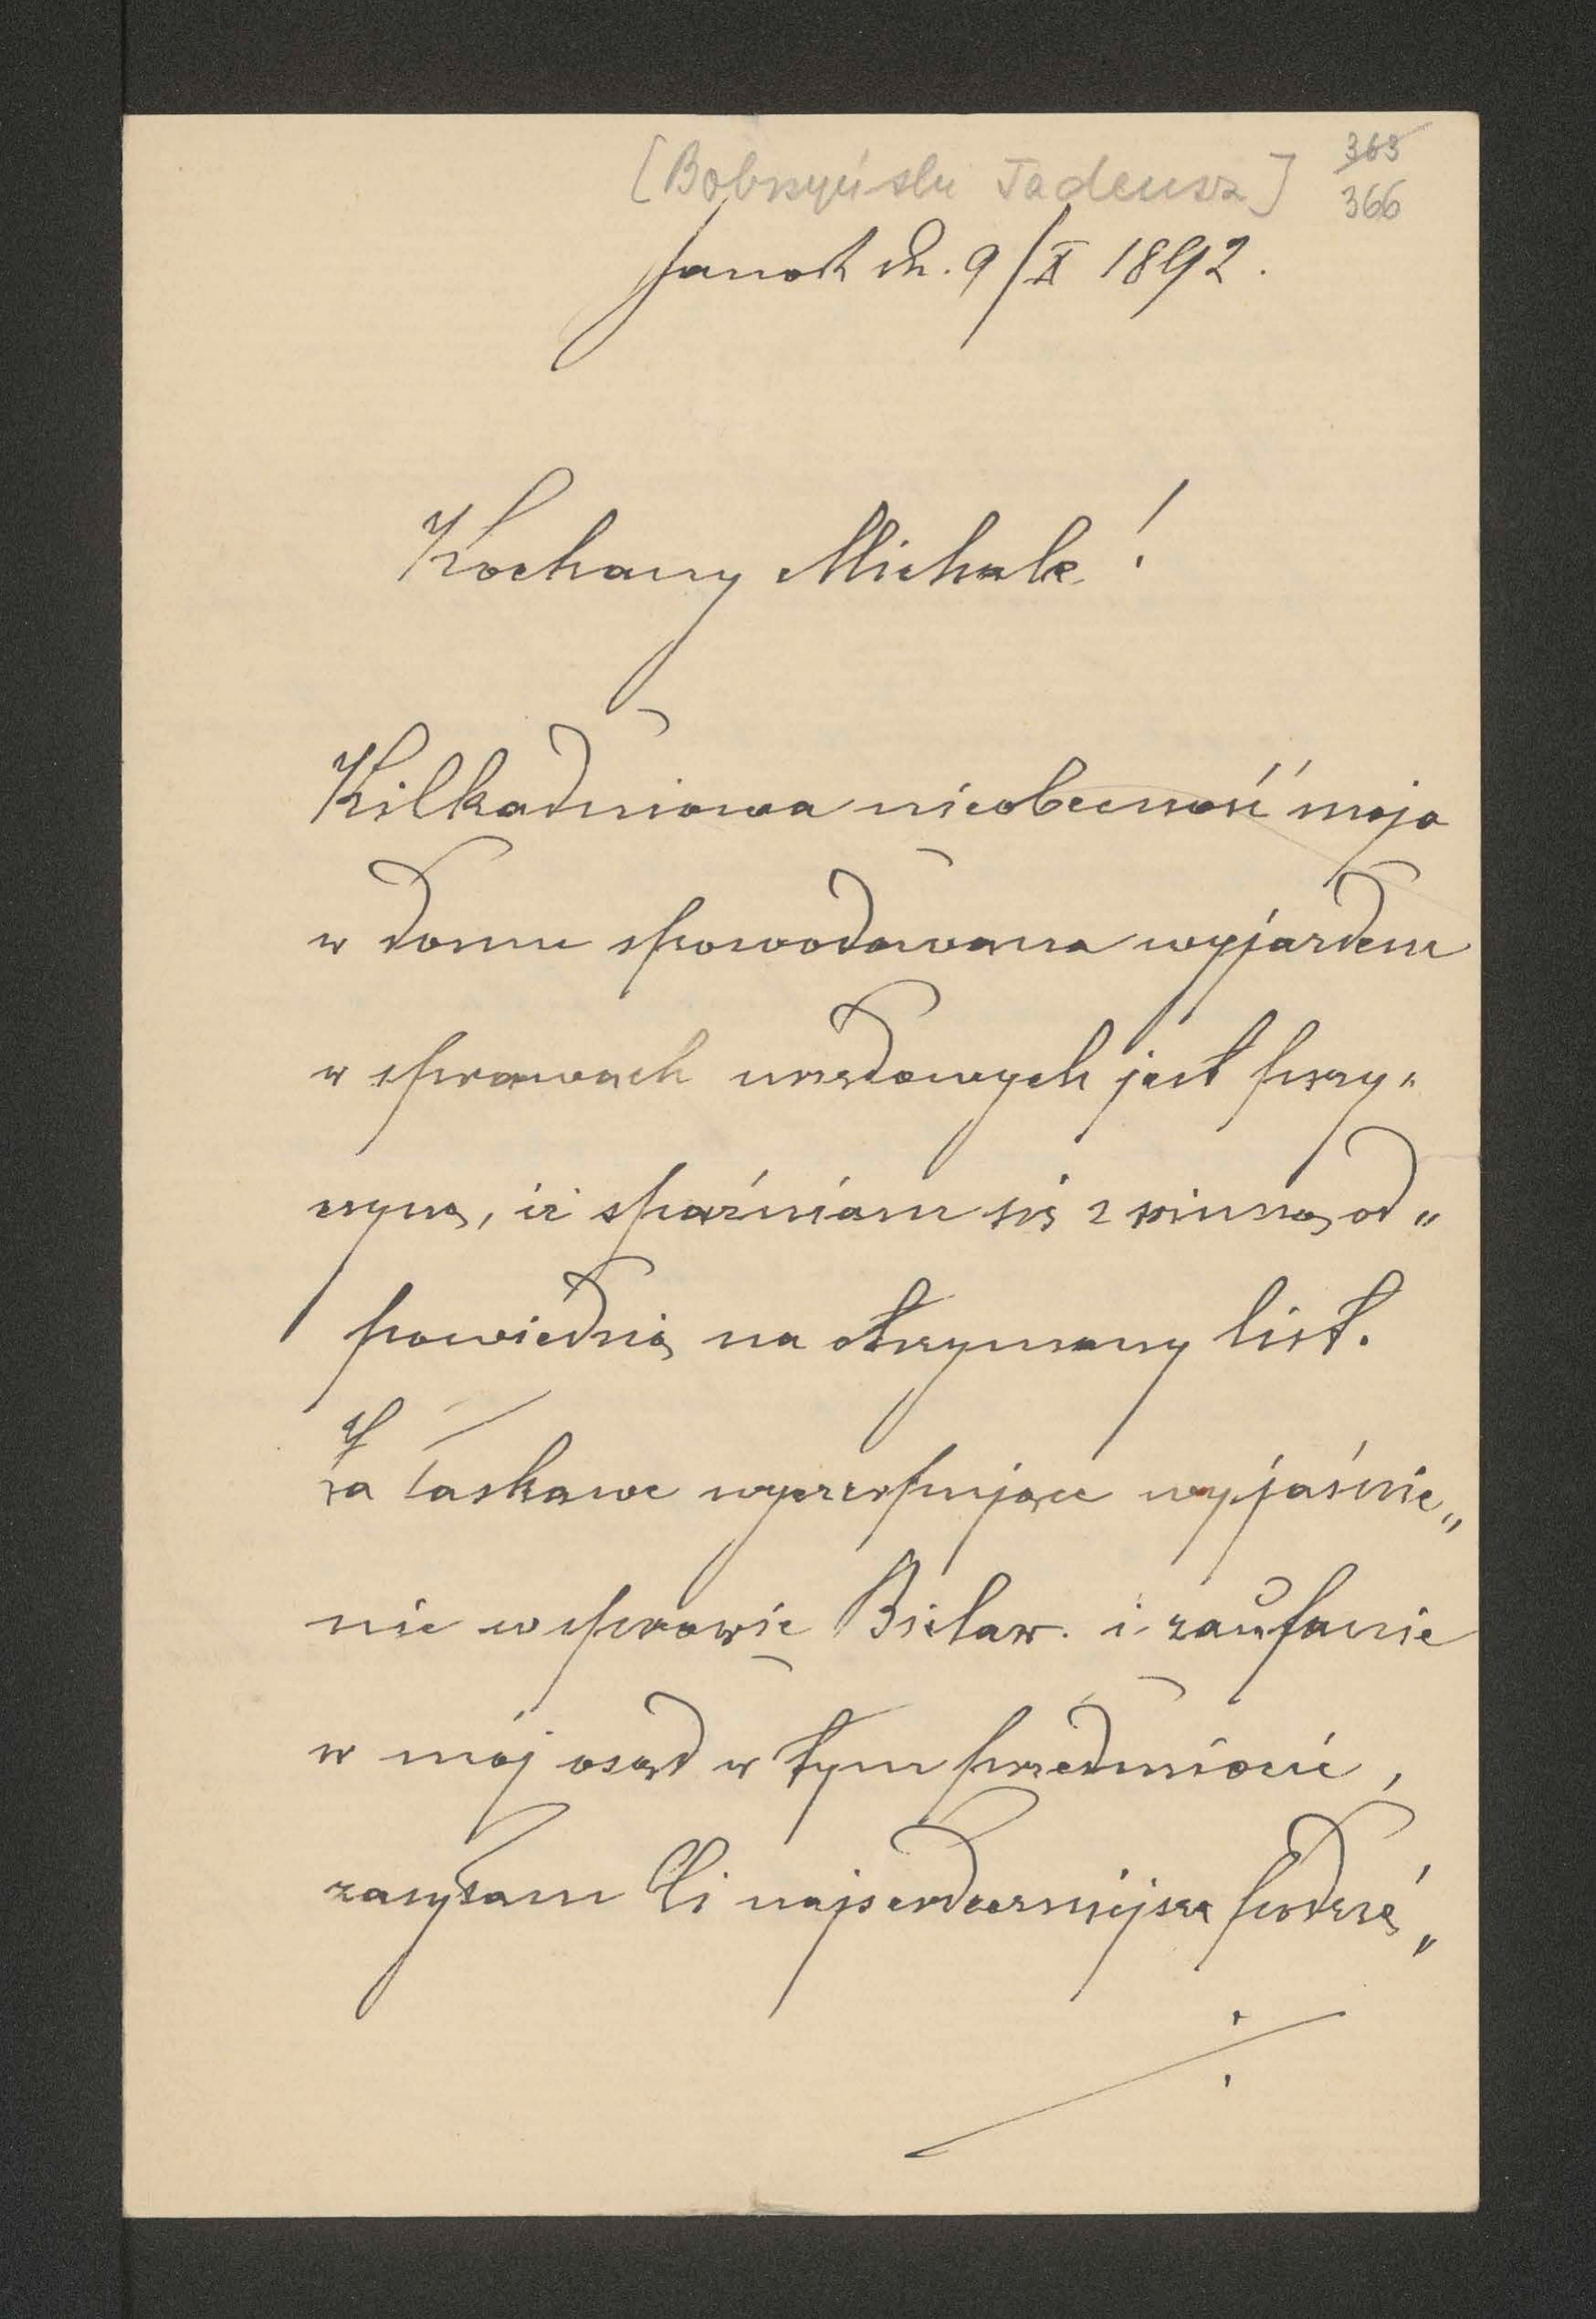 [Bobrzyński Tadeusz]
365
366
Sanok dn. 9/X 1892.
Kochany Michale!
Kilkadniowa nieobecność moja
w domu spowodowana wyjazdem
w sprawach urzędowych jest przy„
czyną, iż spóźniam się z winną od„
powiedzią na otrzymany list.
Za łaskawe wyczerpujące wyjaśnie„
nie w sprawie Bielaw. i zaufanie
w mój osąd w tym przedmiocie,
zasyłam Ci najserdeczniejsze podzię„